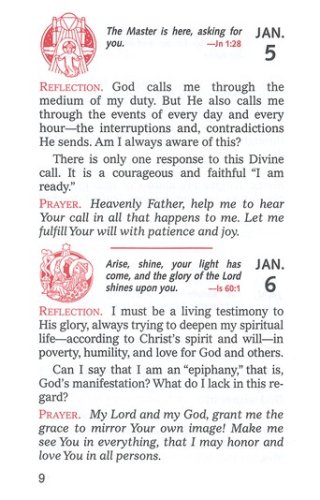 The Master is here, asking for
you. —Jn 1:28
JAN.
5
REFLECTION. God calls me through the
medium of my duty. But He also calls me
through the events of every day and every
hour—the interruptions and, contradictions
He sends. Am I always aware of this?
There is only one response to this Divine
call. It is a courageous and faithful “I am
ready.”
PRAYER. Heavenly Father, help me to hear
Your call in all that happens to me. Let me
fulfill Your will with patience and joy.
Arise, shine, your light has
come, and the glory of the Lord
shines upon you. —Is 60:1
JAN.
6
REFLECTION. I must be a living testimony to
His glory, always trying to deepen my spiritual
life—according to Christ’s spirit and will—in
poverty, humility, and love for God and others.
Can I say that I am an “epiphany,” that is,
God’s manifestation? What do I lack in this re-
gard?
PRAYER. My Lord and my God, grant me the
grace to mirror Your own image! Make me
see You in everything, that I may honor and
love You in all persons.
9